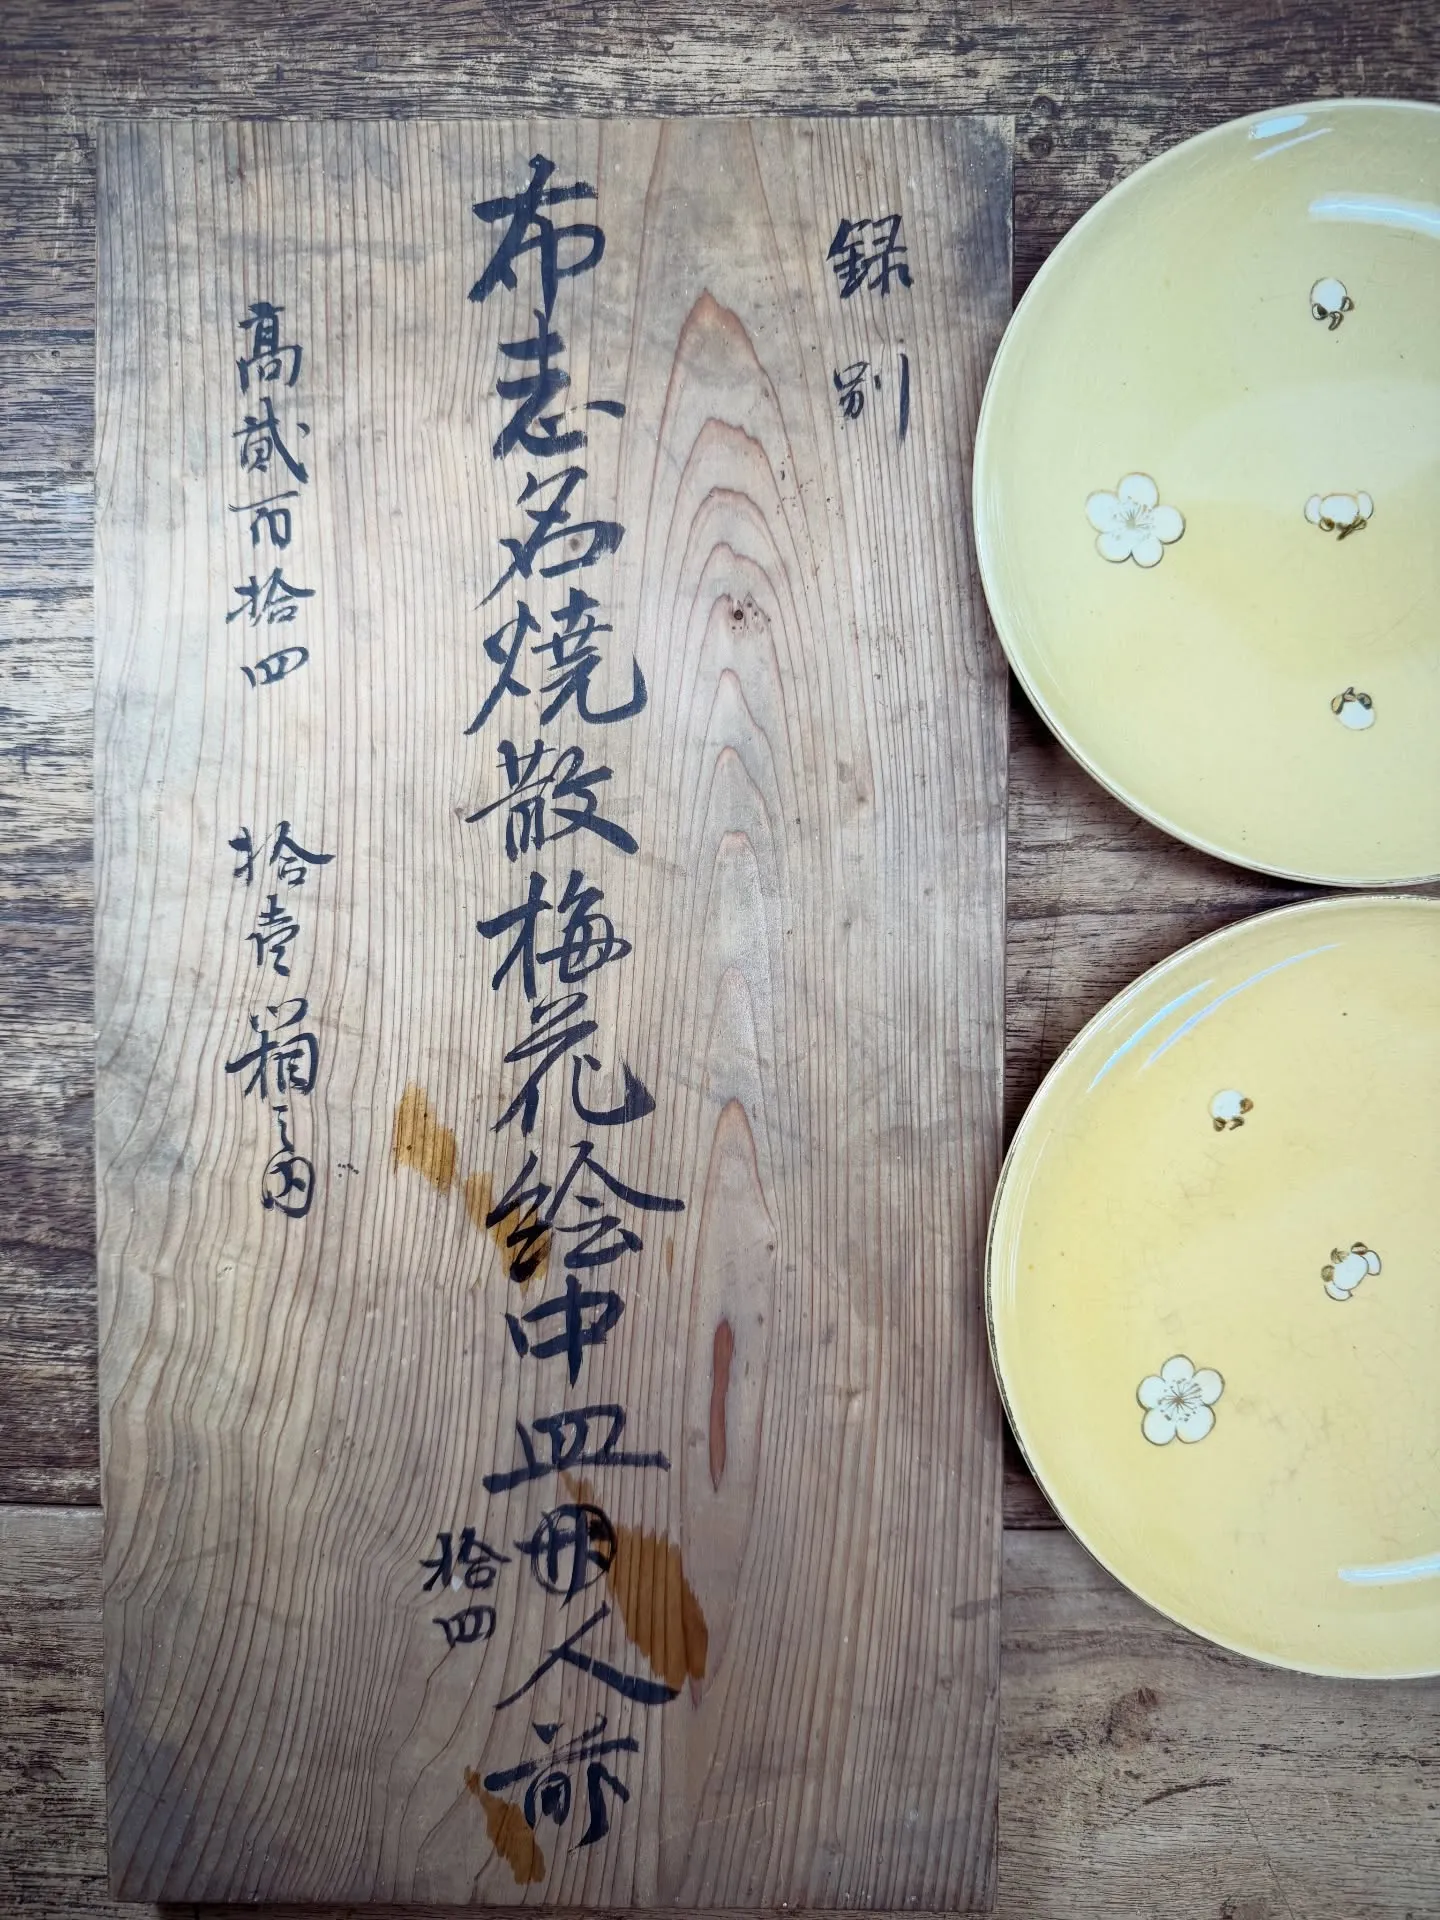 録別
布志名焼散梅花絵中皿冊人前
拾四
高貳百拾四
拾壹箱之内